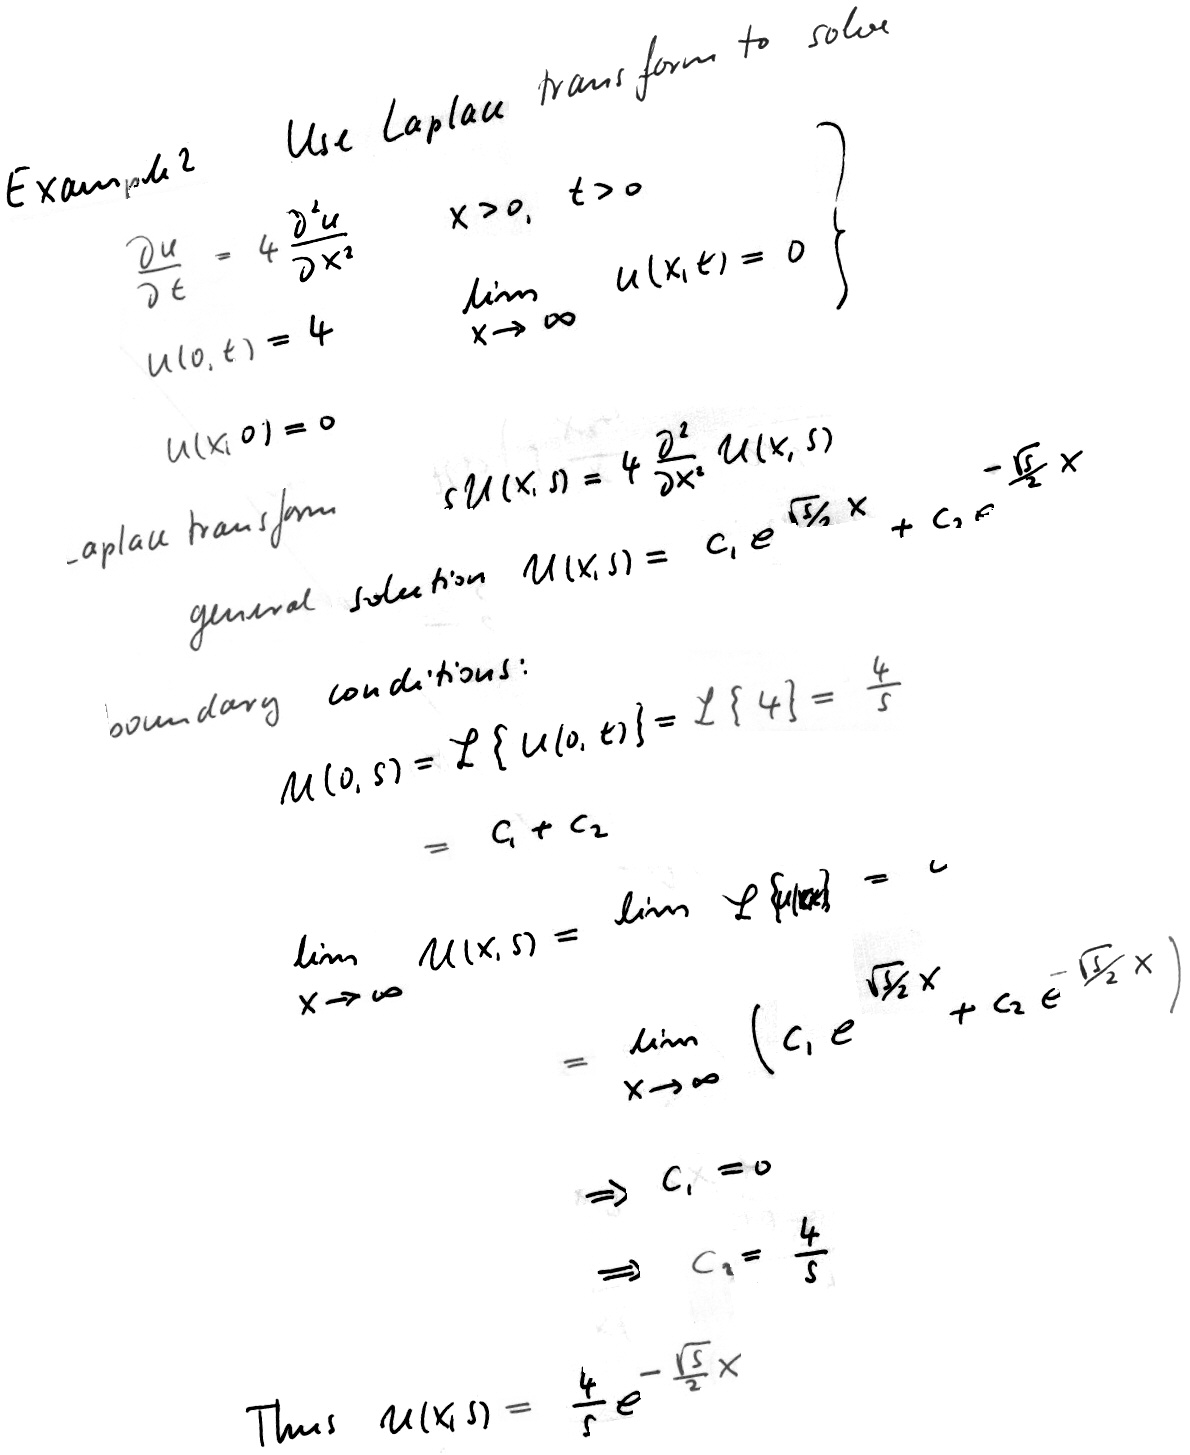 Example 2 Use Laplace transform to solve
∂u/∂t = 4 ∂²u/∂x² x>0, t>0
u(0,t) = 4 lim x→∞ u(x,t) = 0 }
u(x,0) = 0
aplace transform s U(x,s) = 4 ∂²/∂x² U(x,s)
general solution U(x,s) = c₁ e^{√s/2 x} + c₂ e^{-√s/2 x}
boundary conditions:
U(0,s) = ℒ{u(0,t)} = ℒ{4} = 4/s
= c₁ + c₂
lim x→∞ U(x,s) = lim ℒ{ } =
= lim x→∞ (c₁ e^{√s/2 x} + c₂ e^{-√s/2 x})
⇒ c₁ = 0
⇒ c₂ = 4/s
Thus U(x,s) = 4/s e^{-√s/2 x}